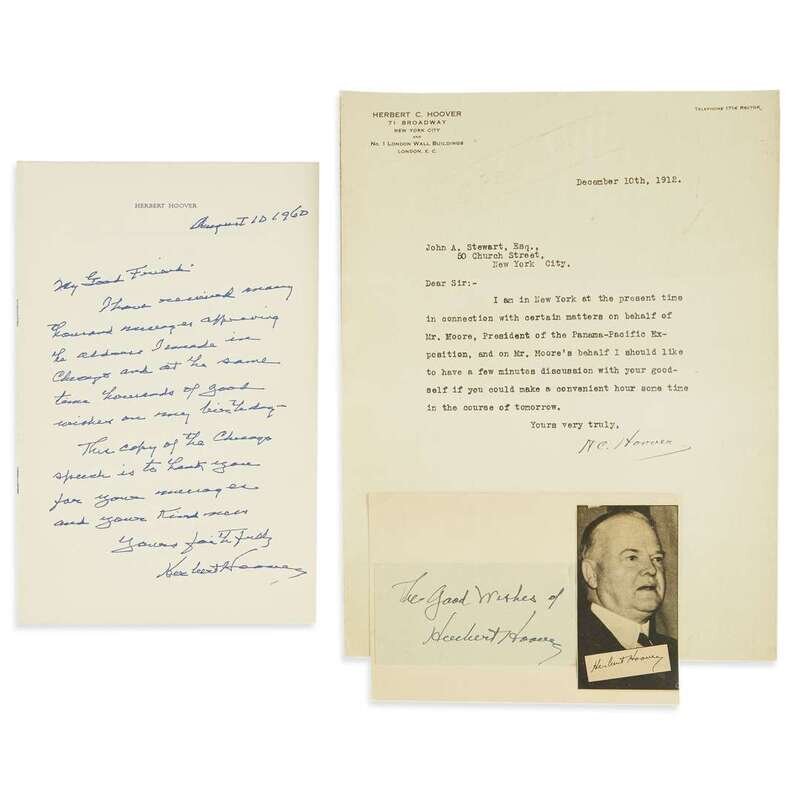 HERBERT HOOVER
August 10 1960
My Good Friend:
I have received many
thousand messages approving
the address I made in
Chicago and at the same
time thousands of good
wishes on my birthday -
This copy of the Chicago
speech is to thank you
for your message
and your kindness
Yours faithfully
Herbert Hoover
HERBERT C. HOOVER
71 BROADWAY
NEW YORK CITY
AND
No. 1 LONDON WALL BUILDINGS
LONDON, E. C.
TELEPHONE 1714 RECTOR
December 10th, 1912.
John A. Stewart, Esq.,
50 Church Street,
New York City.
Dear Sir:-
I am in New York at the present time
in connection with certain matters on behalf of
Mr. Moore, President of the Panama-Pacific Ex-
position, and on Mr. Moore's behalf I should like
to have a few minutes discussion with your good-
self if you could make a convenient hour some time
in the course of tomorrow.
Yours very truly,
H.C. Hoover
The Good Wishes of
Herbert Hoover
Herbert Hoover